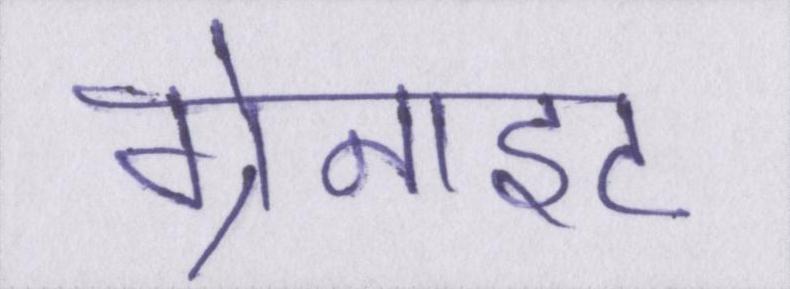 ग्रेनाइट